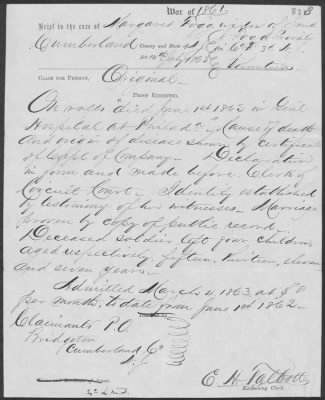 War of 1861
Brief in the case of Margaret widow of
Cumberland County and State of
Act 14th July 1862
CLAIM FOR PENSION, Original.
PROOF EXHIBITED,
On rolls died June 1st 1862 in Genl
Hospital at Philad. Cause of death
and origin of disease shown by certificate
of Capt of Company. Declaration
in form and made before Clerk of
Circuit Court. Identity established
by testimony of two witnesses. Marriage
proven by copy of public record.
Deceased soldier left four children
aged respectively, fifteen, thirteen, eleven
and seven years.
Admitted March 4, 1863, at $8
per month, to date from June 1st 1862.
Claimants P.O.
Bridgeton
Cumberland Co
N.J.
E. H. Talbott
Examining Clerk.